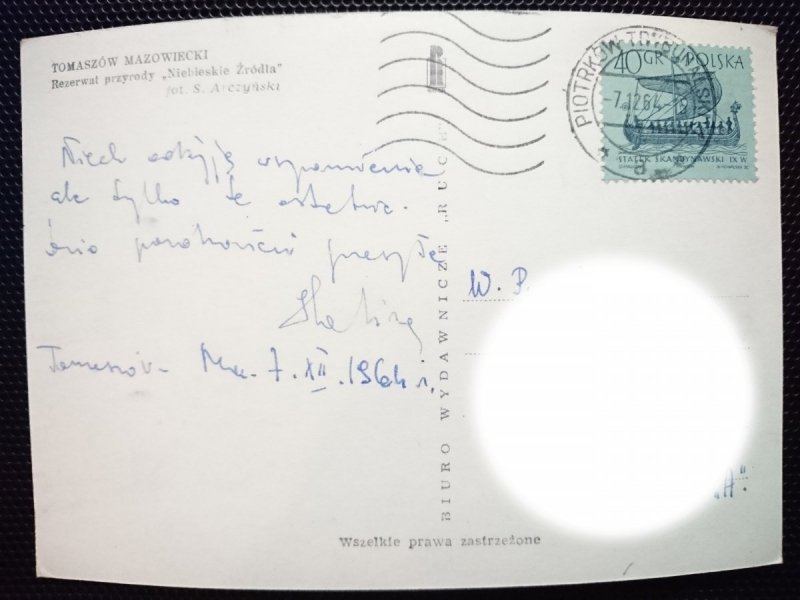 TOMASZÓW MAZOWIECKI
Rezerwat przyrody „Niebieskie Źródła"
fot. S. Arczyński
Niech odżyją wspomnienia
ale tylko te ostatnie.
przesyła
Tomaszów Maz. 7.XII.1964 r.
BIURO WYDAWNICZE „RUCH"
PIOTRKÓW TRYBUNALSKI
-7.12.64.-
40 GR POLSKA
STATEK SKANDYNAWSKI IX W.
W. P.
„A".
Wszelkie prawa zastrzeżone